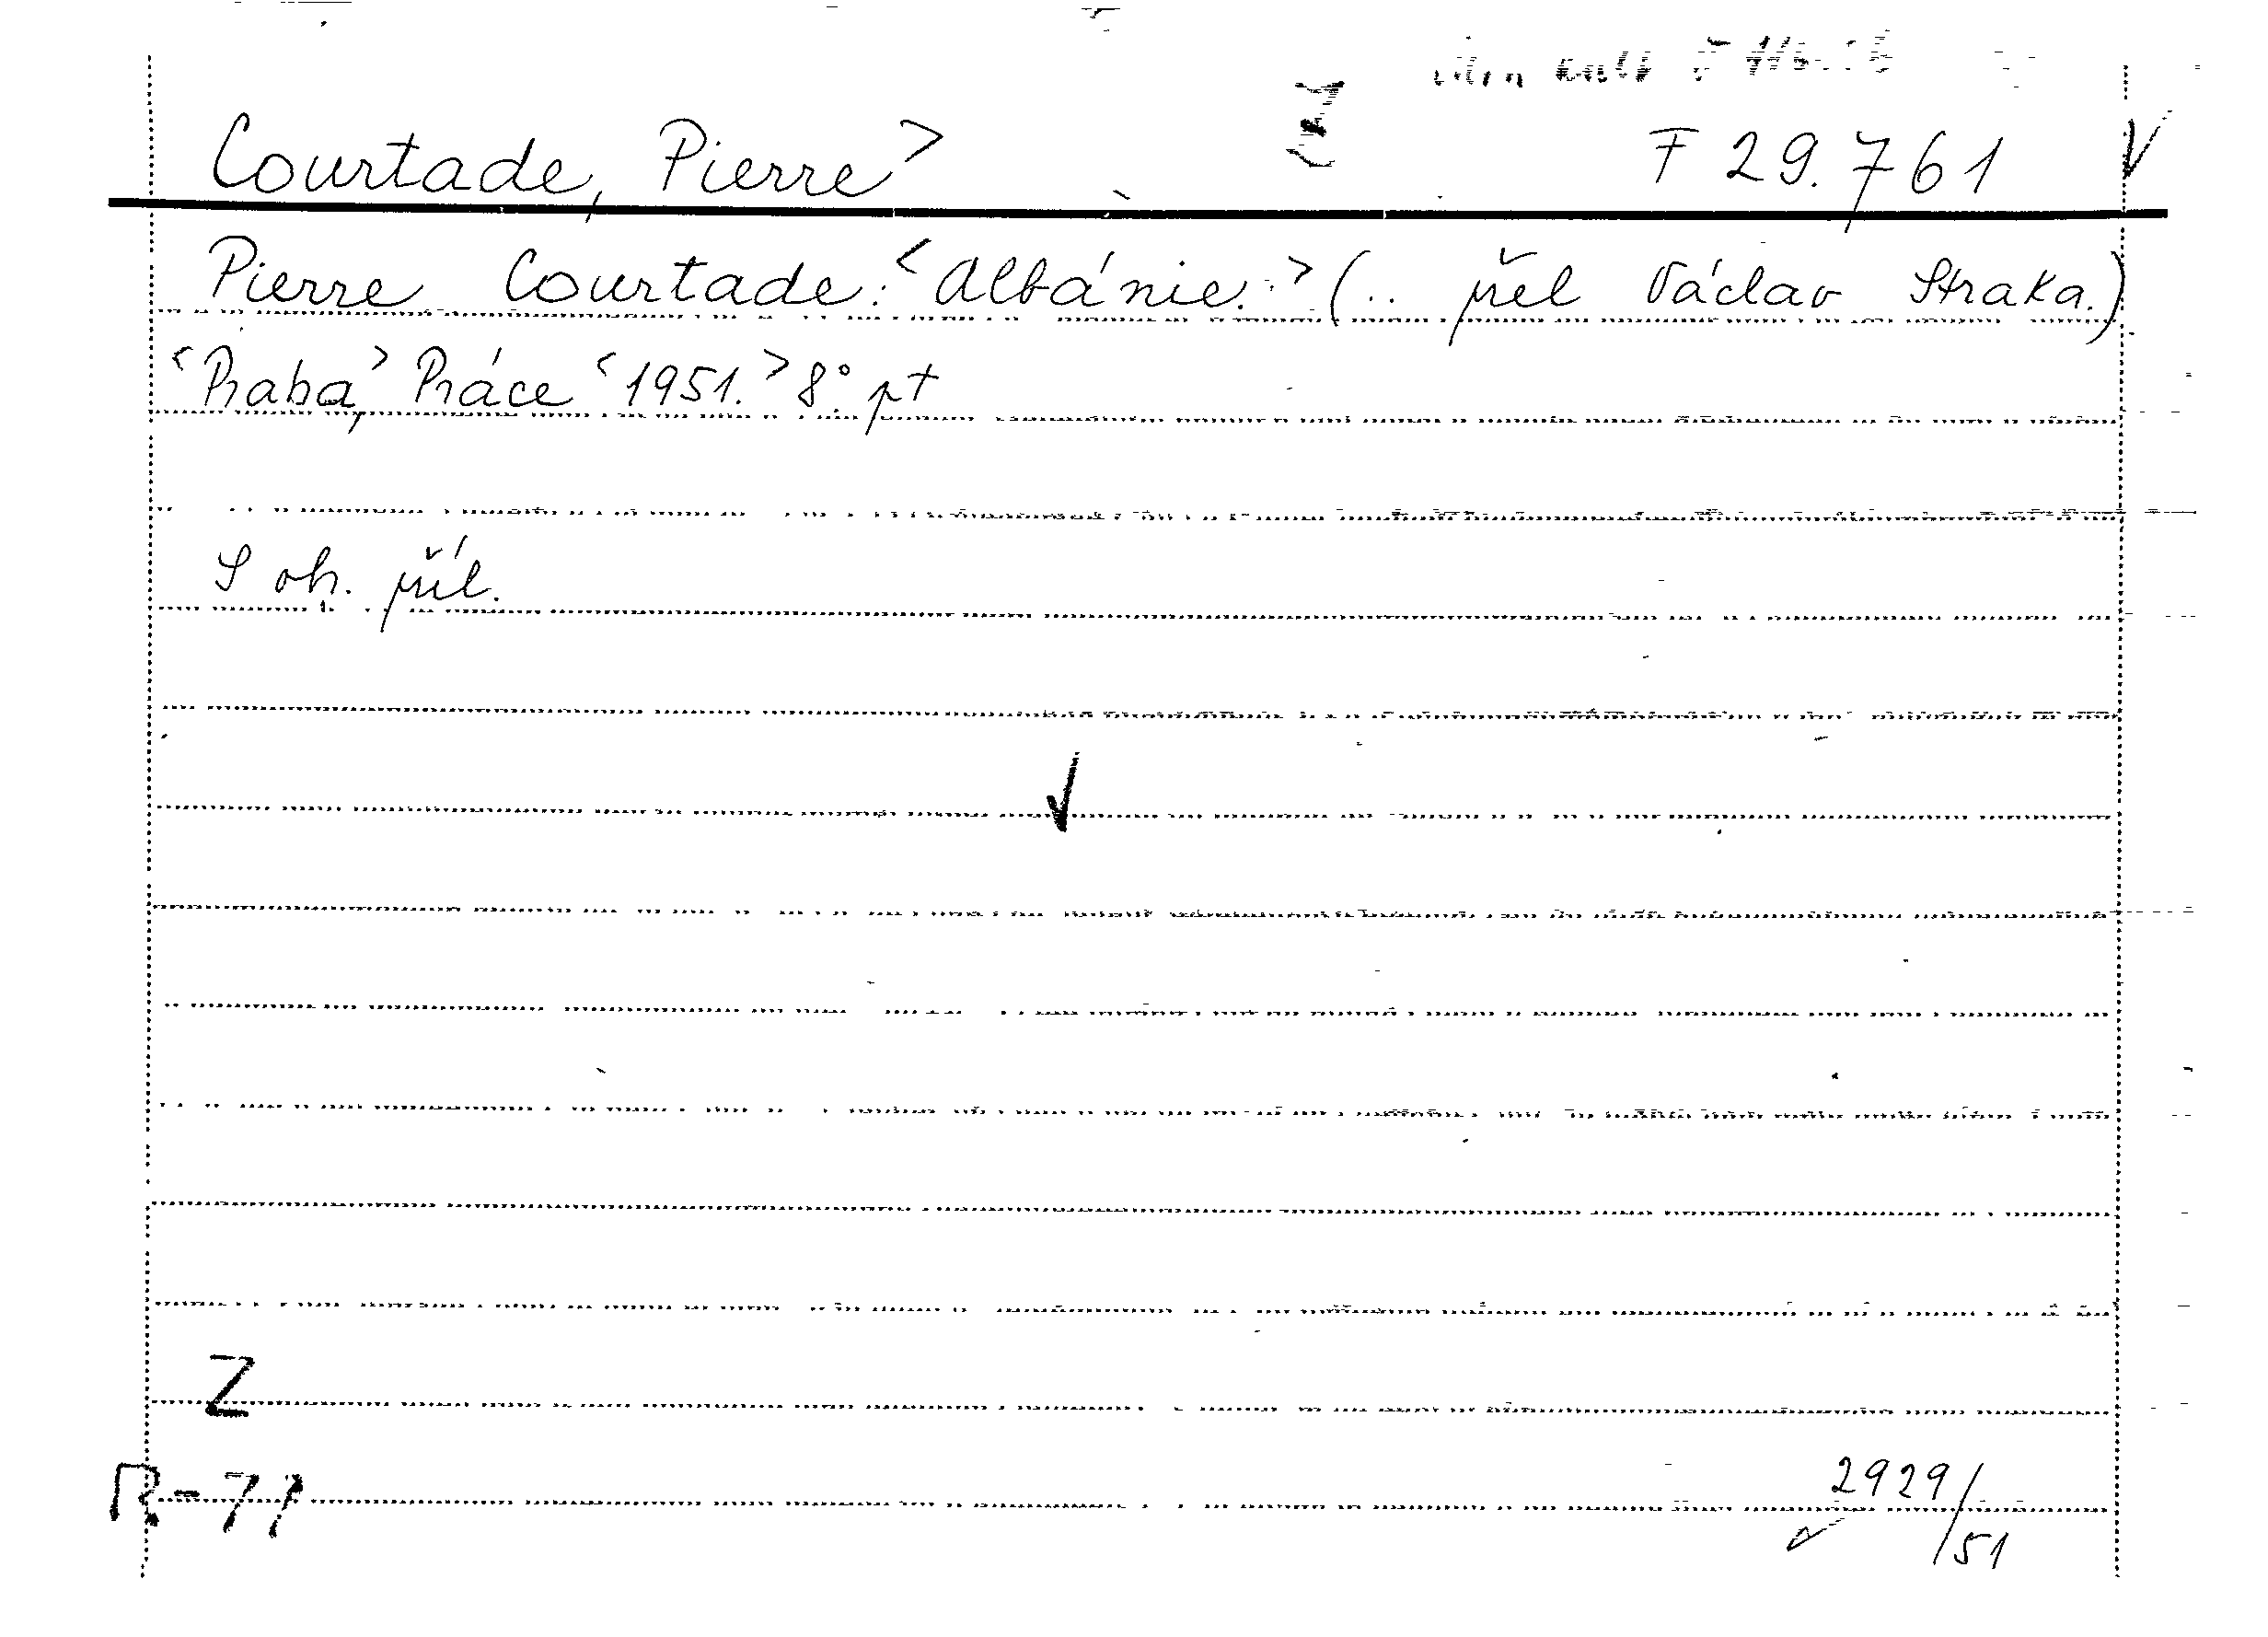 Courtade, Pierre> F 29.761
Pierre Courtade: <Albánie.> (.. přel Václav Straka.)
<Praha,> Práce <1951.> 8° pt
S ob. příl.
Z
R-71
2929/51